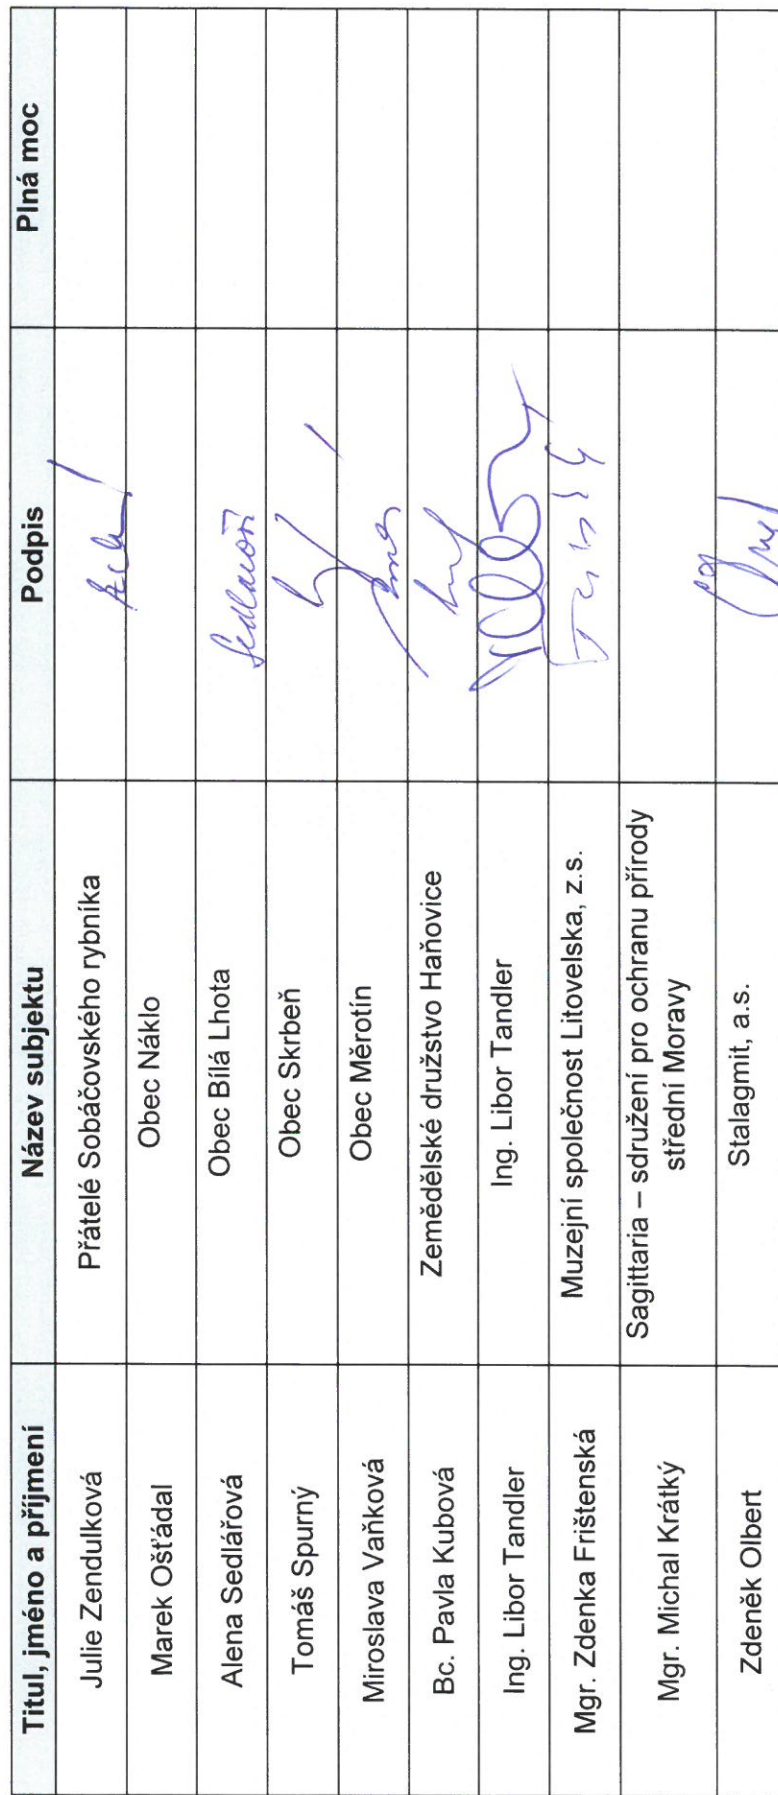 Titul, jméno a příjmení Název subjektu Podpis Plná moc
Julie Zendulková Přátelé Sobáčovského rybníka
Marek Ošťádal Obec Náklo
Alena Sedlářová Obec Bílá Lhota
Tomáš Spurný Obec Skrbeň
Miroslava Vaňková Obec Měrotín
Bc. Pavla Kubová Zemědělské družstvo Haňovice
Ing. Libor Tandler Ing. Libor Tandler
Mgr. Zdenka Frištenská Muzejní společnost Litovelska, z.s.
Mgr. Michal Krátký Sagittaria – sdružení pro ochranu přírody
střední Moravy
Zdeněk Olbert Stalagmit, a.s.